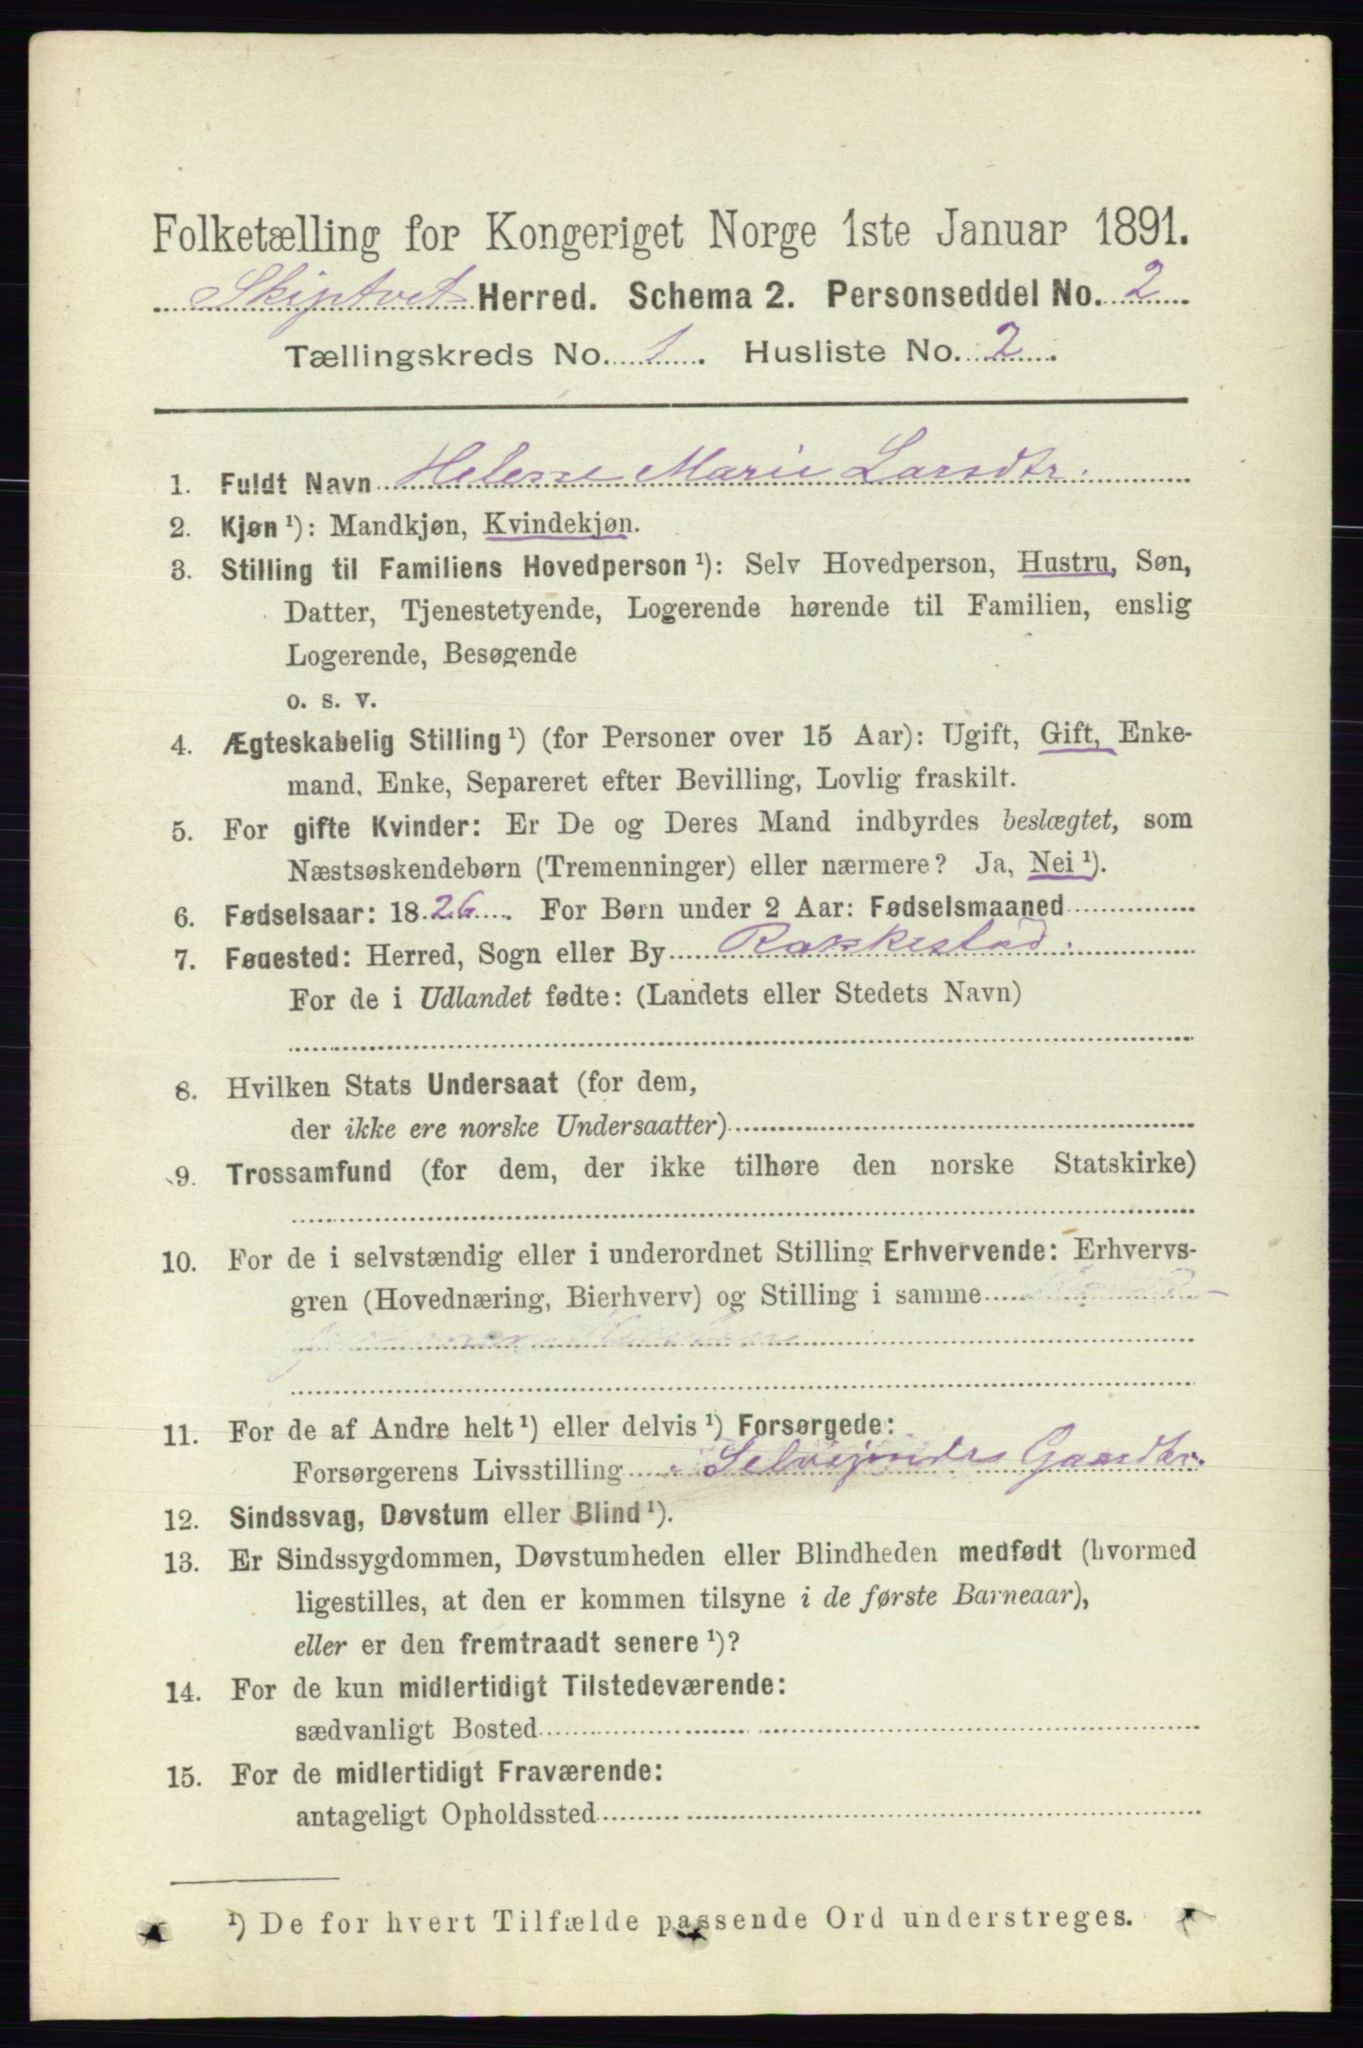 Folketælling for Kongeriget Norge 1ste Januar 1891.
Skiptvet Herred. Schema 2. Personseddel No. 2
Tællingskreds No. 1. Husliste No. 2.
1. Fuldt Navn Helene Marie Larsdtr.
2. Kjøn ¹): Mandkjøn, Kvindekjøn.
3. Stilling til Familiens Hovedperson ¹): Selv Hovedperson, Hustru, Søn,
Datter, Tjenestetyende, Logerende hørende til Familien, enslig
Logerende, Besøgende
o. s. v.
4. Ægteskabelig Stilling ¹) (for Personer over 15 Aar): Ugift, Gift, Enke-
mand, Enke, Separeret efter Bevilling, Lovlig fraskilt.
5. For gifte Kvinder: Er De og Deres Mand indbyrdes beslægtet, som
Næstsøskendebørn (Tremenninger) eller nærmere? Ja, Nei ¹).
6. Fødselsaar: 1826. For Børn under 2 Aar: Fødselsmaaned
7. Fødested: Herred, Sogn eller By Rakkestad.
For de i Udlandet fødte: (Landets eller Stedets Navn)
8. Hvilken Stats Undersaat (for dem,
der ikke ere norske Undersaatter)
9. Trossamfund (for dem, der ikke tilhøre den norske Statskirke)
10. For de i selvstændig eller i underordnet Stilling Erhvervende: Erhvervs-
gren (Hovednæring, Bierhverv) og Stilling i samme
11. For de af Andre helt ¹) eller delvis ¹) Forsørgede:
Forsørgerens Livsstilling Selveiende
12. Sindssvag, Døvstum eller Blind ¹).
13. Er Sindssygdommen, Døvstumheden eller Blindheden medfødt (hvormed
ligestilles, at den er kommen tilsyne i de første Barneaar),
eller er den fremtraadt senere ¹)?
14. For de kun midlertidigt Tilstedeværende:
sædvanligt Bosted
15. For de midlertidigt Fraværende:
antageligt Opholdssted
¹) De for hvert Tilfælde passende Ord understreges.